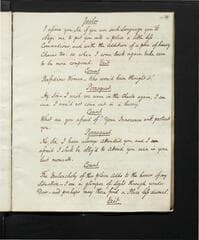 Jailor
I assure you Sir if you use such Language you'll
oblige me to put you into a place a little less
Commodious and with the addition of a pair of heavy
Chains too. so when I come back again take care
to be more composed. Exit
Count
Perfidious Woman, who would have thought it?
Peroquet
My Sir I wish we were in the Chaise again, I am
sure I would not come out in a hurry.
Count
What are you afraid of? Your Innocence will protect
you.
Peroquet
No, Sir I have always attended you, and I am
afraid I shall be oblig'd to attend you even in your
last moments.
Count
The melancholy of this place adds to the horror of my
Situation. I see a glimpse of light through yonder
door, and perhaps may there find a place less dismal.
Exit.